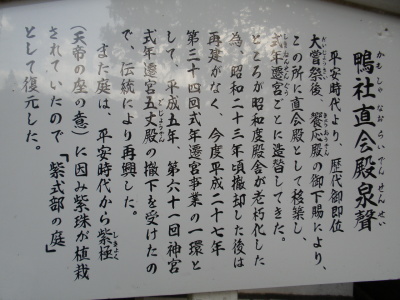 鴨社直会殿泉聲
かもしゃ なおらいでんせんせい
平安時代より、歴代御即位
大嘗祭後、饗応殿の御下賜により、
この所に直会殿として移築し、
式年遷宮ごとに造替してきた。
ところが昭和度殿舎が老朽化した
為、昭和二十三年頃撤却した後は
再建がなく、今度平成二十七年
第三十四回式年遷宮事業の一環と
して、平成五年、第六十一回神宮
式年遷宮五丈殿の撤下を受けたの
で、伝統により再興した。
また庭は、平安時代から紫極
（天帝の座の意）に因み紫珠が植栽
されていたので「紫式部の庭」
として復元した。